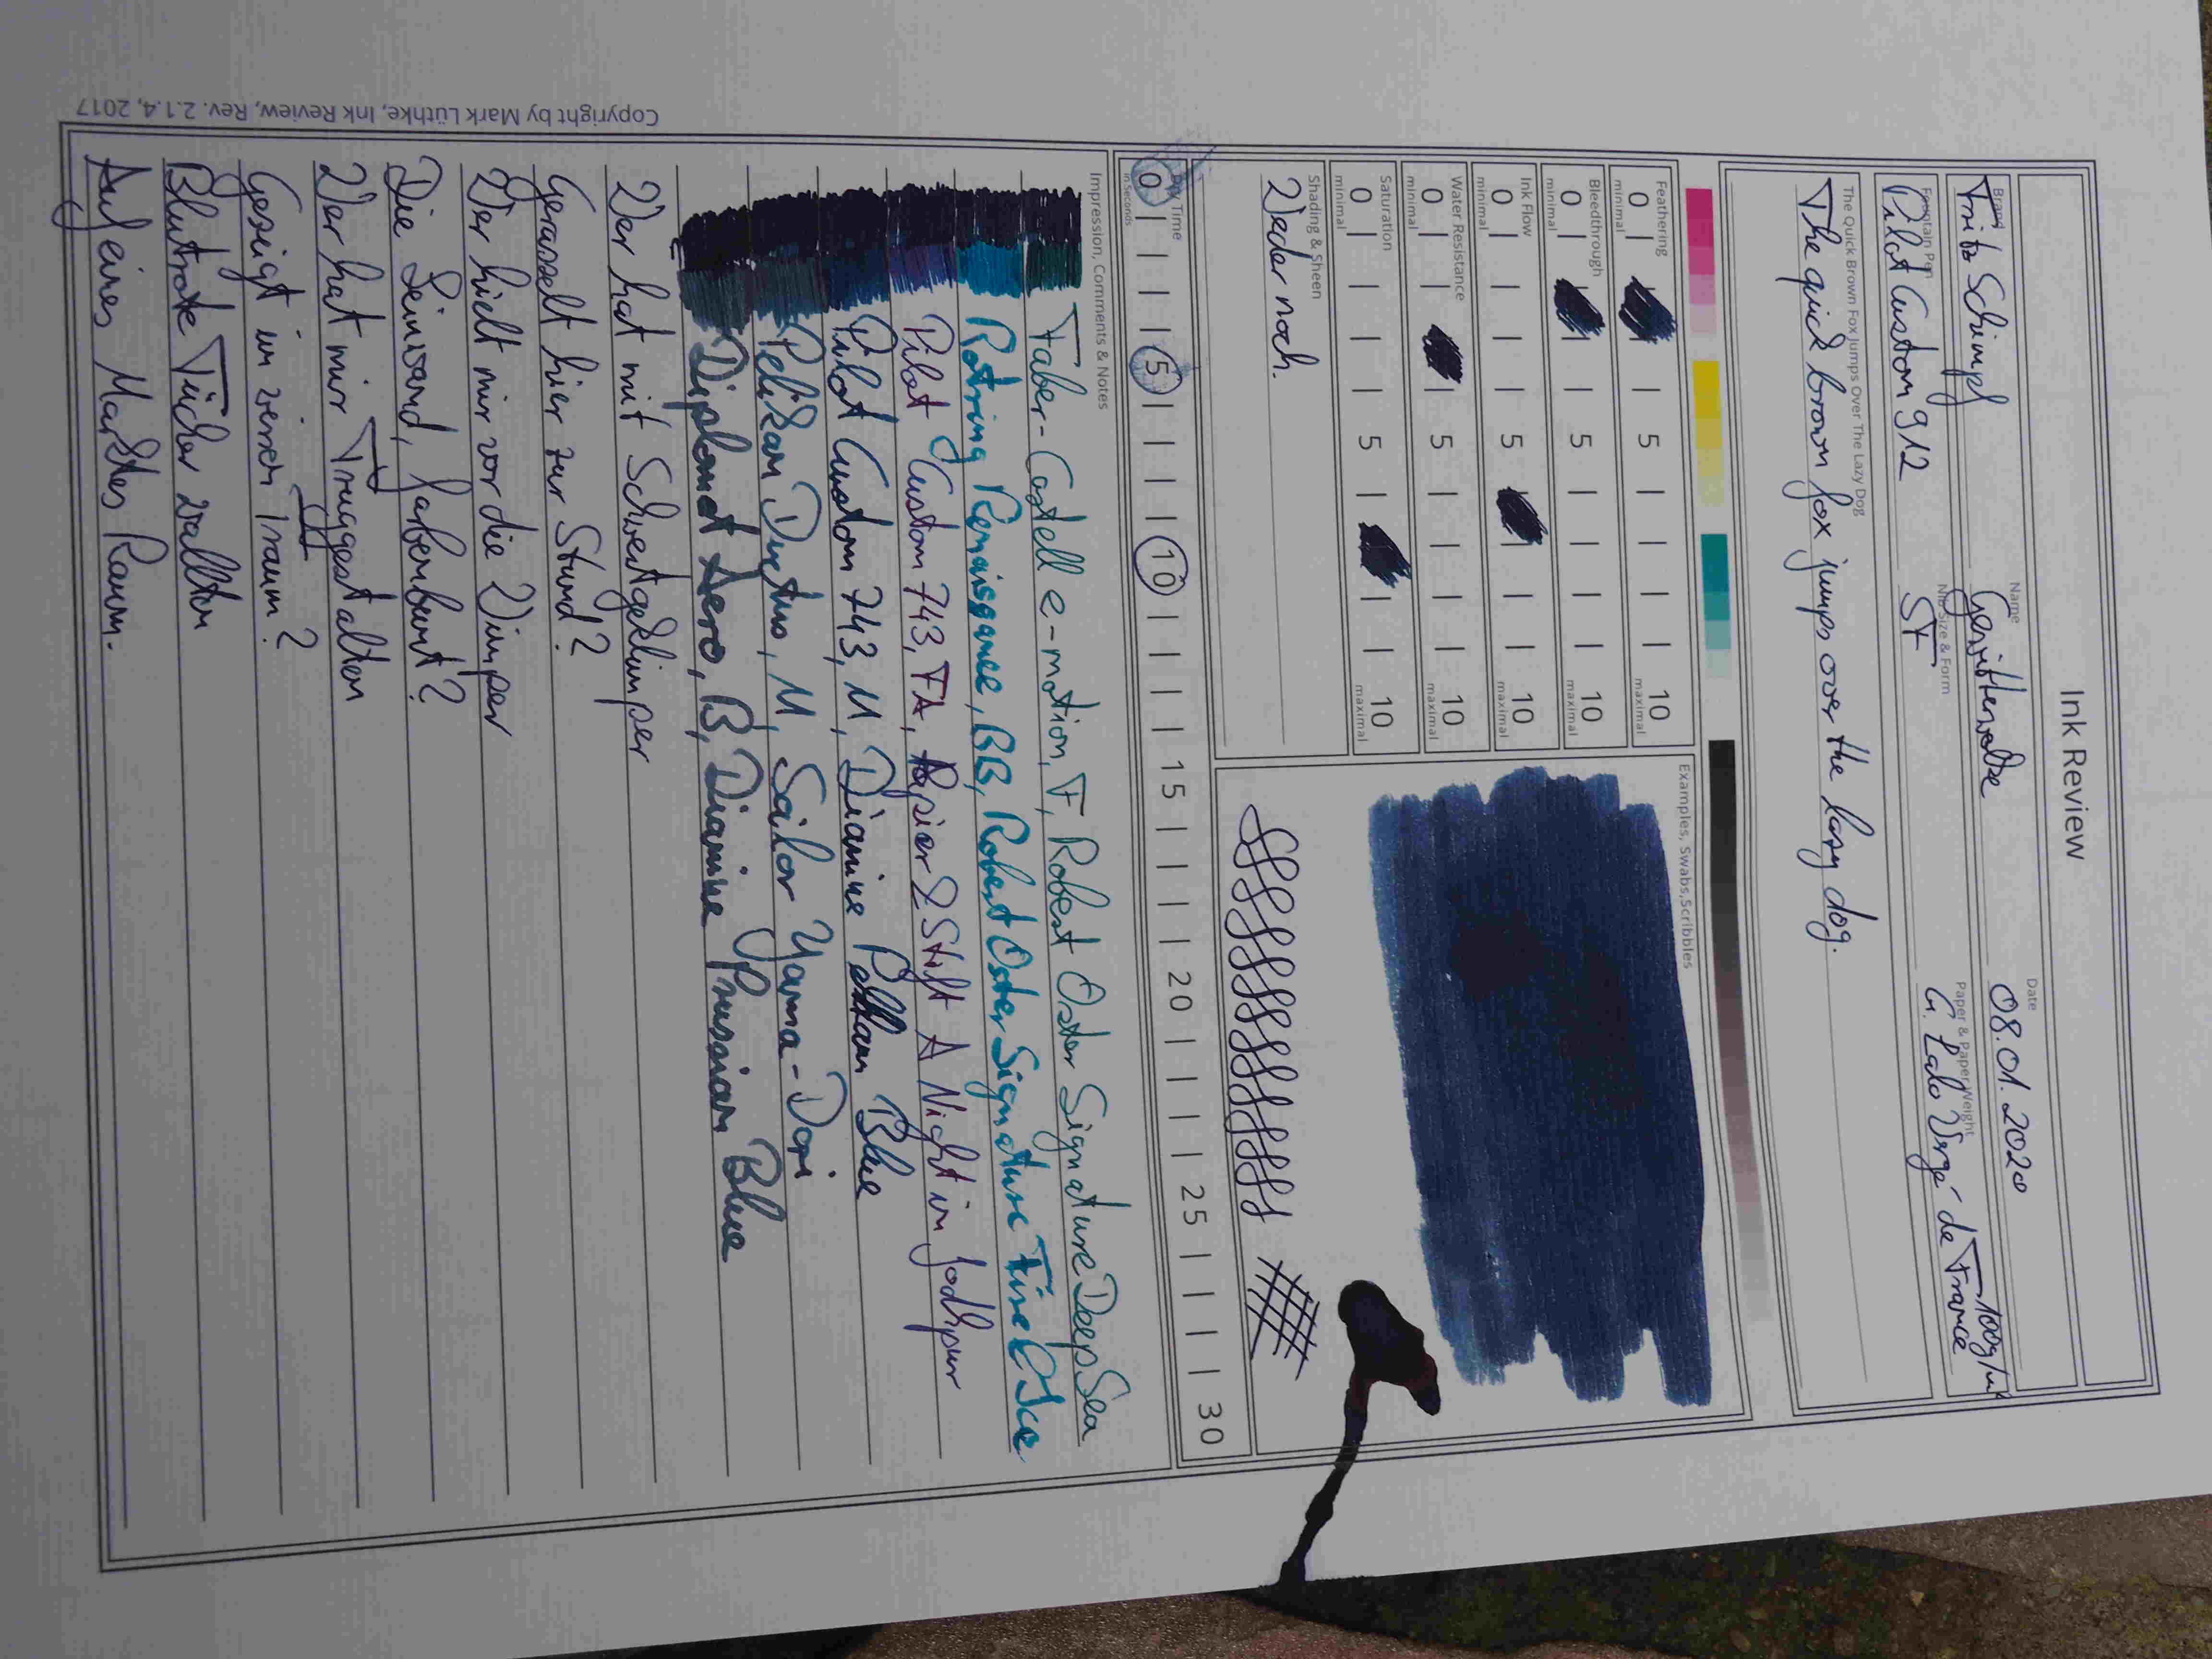 Ink Review
Brand
Name
Date
Fritz Schimpf
Gewitterwolke
08.01.2020
Fountain Pen
Nib Size & Form
Paper & Paper Weight
Pilot Custom 912
SF
G. Lalo Vergé de France 100g/m²
The Quick Brown Fox Jumps Over The Lazy Dog
The quick brown fox jumps over the lazy dog.
Feathering
0 5 10
minimal maximal
Bleedthrough
0 5 10
minimal maximal
Ink Flow
0 5 10
minimal maximal
Water Resistance
0 5 10
minimal maximal
Saturation
0 5 10
minimal maximal
Shading & Sheen
Weder noch.
Examples, Swabs, Scribbles
Dry Time
0 5 10 15 20 25 30
in Seconds
Impression, Comments & Notes
Faber-Castell e-motion, F, Robert Oster Signature Deep Sea
Rotring Renaissance, BB, Robert Oster Signature Fire & Ice
Pilot Custom 743, FA, Papier & Stift A Night in Jodhpur
Pilot Custom 743, M, Diamine Blue
Pelikan M, Sailor Yama-Dori
Diplomat Aero, B, Diamine Prussian Blue
Wer hat mit Schwertgeklimper
Gerasselt hier zur Stund?
Wer hielt mir vor die Wimper
Die Leinwand, farbenbunt?
Wer hat mir Truggestalten
Gezeigt in seinem Traum?
Blutrote Tücher wallten
Auf eines Marktes Raum.
Copyright by Mark Lüthke, Ink Review, Rev. 2.1.4, 2017